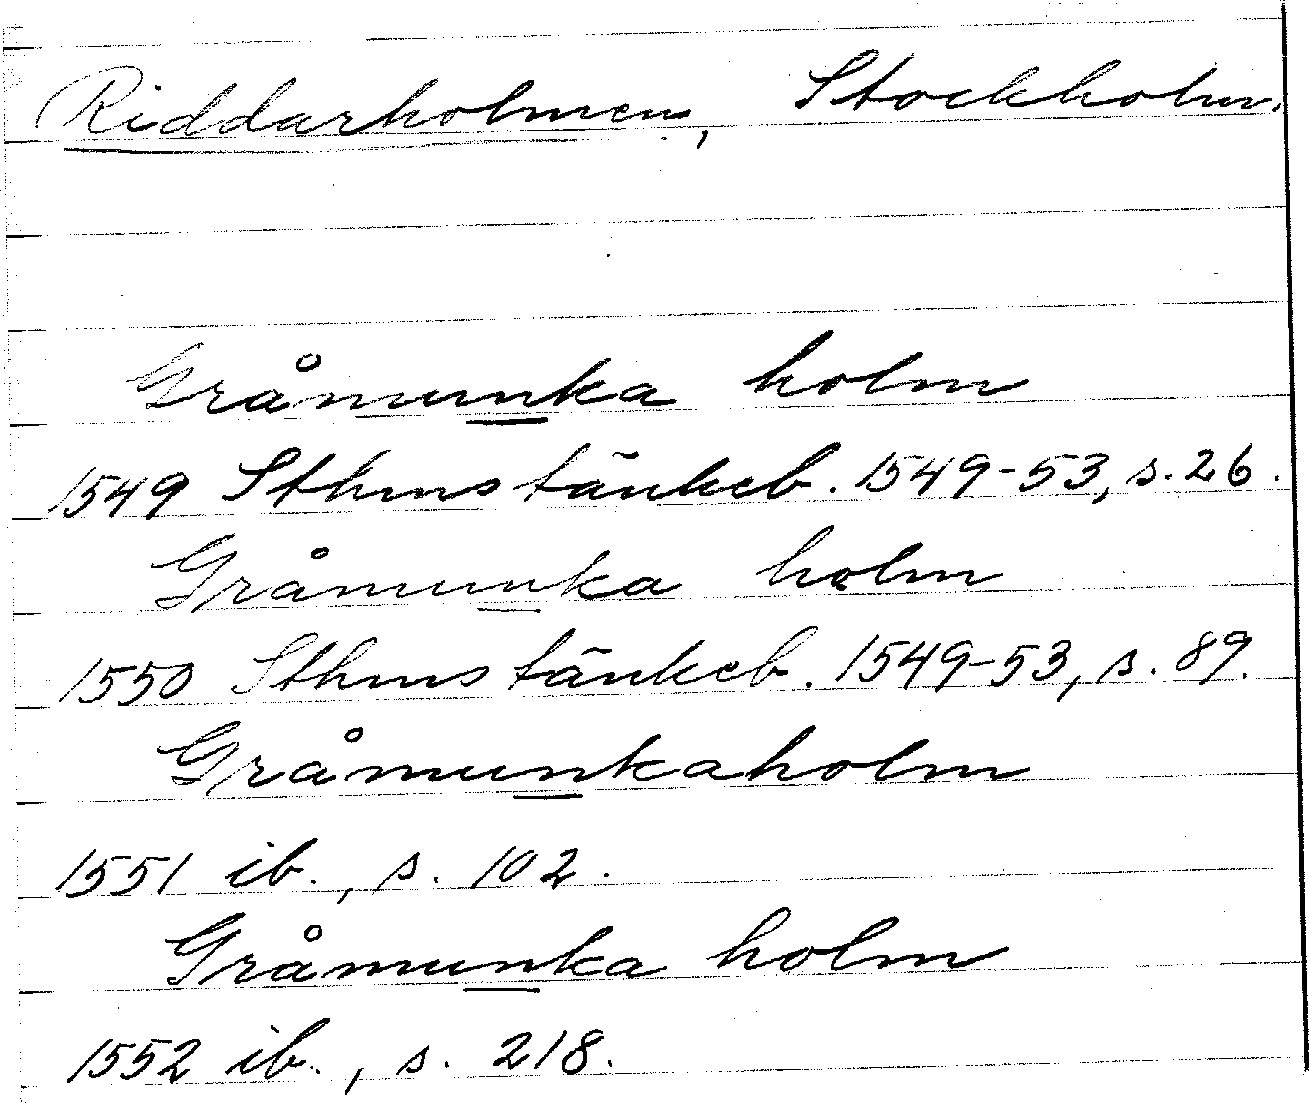 Riddarholmen, Stockholm.
Gråmunka holm
1549 Sthms tänkeb. 1549-53, s. 26.
Gråmunka holm
1550 Sthms tänkeb. 1549-53, s. 89.
Gråmunkaholm
1551 ib., s. 102.
Gråmunka holm
1552 ib., s. 218.